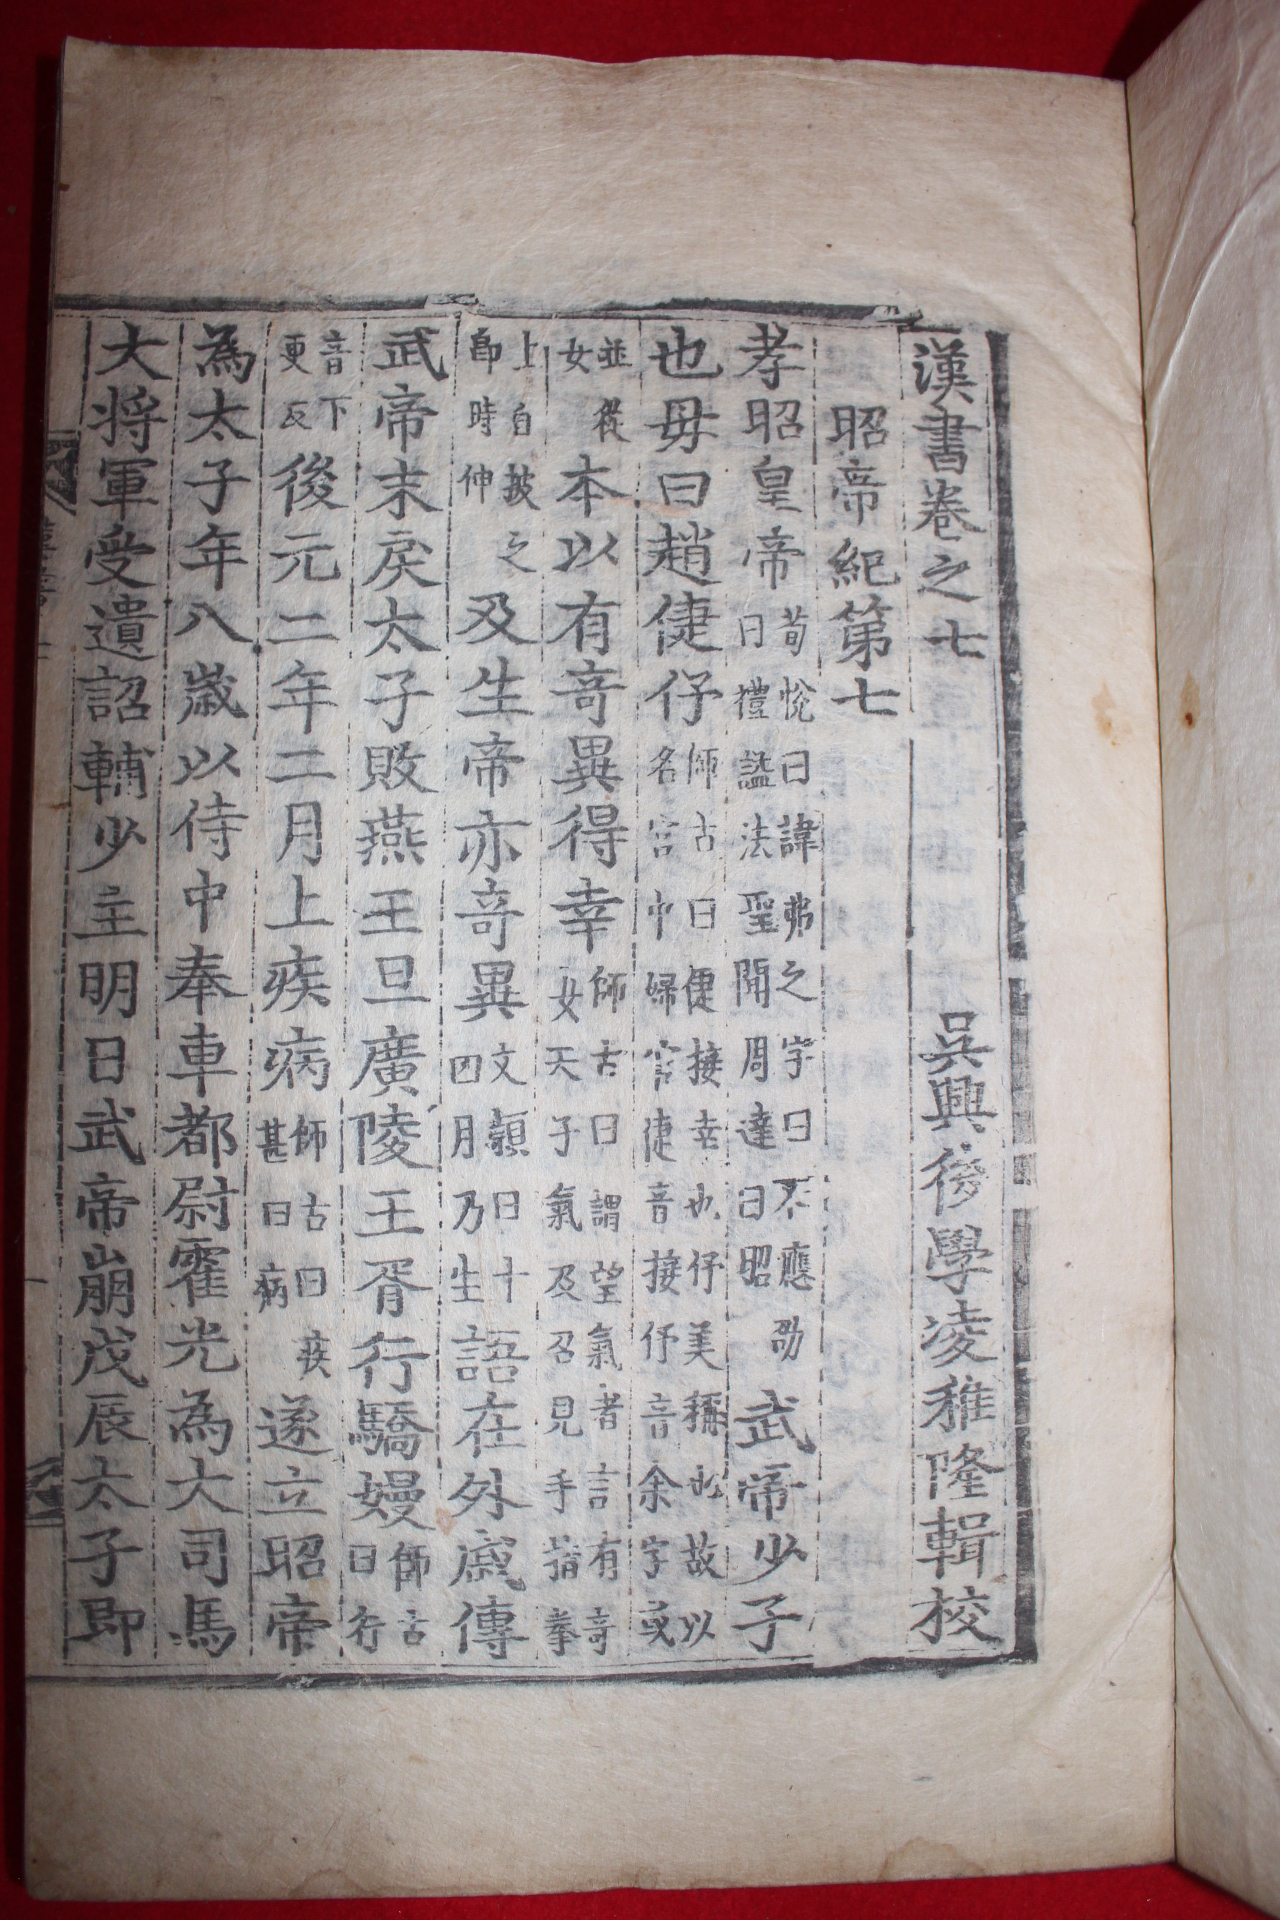 漢書卷之七 吳興後學凌稚隆輯校
昭帝紀第七
孝昭皇帝荀悅曰諱弗之字曰不應劭曰禮謚法聖聞周達曰昭武帝少子
也毋曰趙倢伃師古曰倢接幸也伃美稱也故以名宮中婦官倢音接伃音余字或
並從女本以有奇異得幸師古曰謂望氣者言有奇女天子氣及召見手指拳
上自披之即時伸及生帝亦奇異文穎曰十四月乃生語在外戚傳
武帝末戾太子敗燕王旦廣陵王胥行驕嫚師古曰行
音下更反後元二年二月上疾病師古曰疾甚曰病遂立昭帝
為太子年八歲以侍中奉車都尉霍光為大司馬
大將軍受遺詔輔少主明日武帝崩戊辰太子即